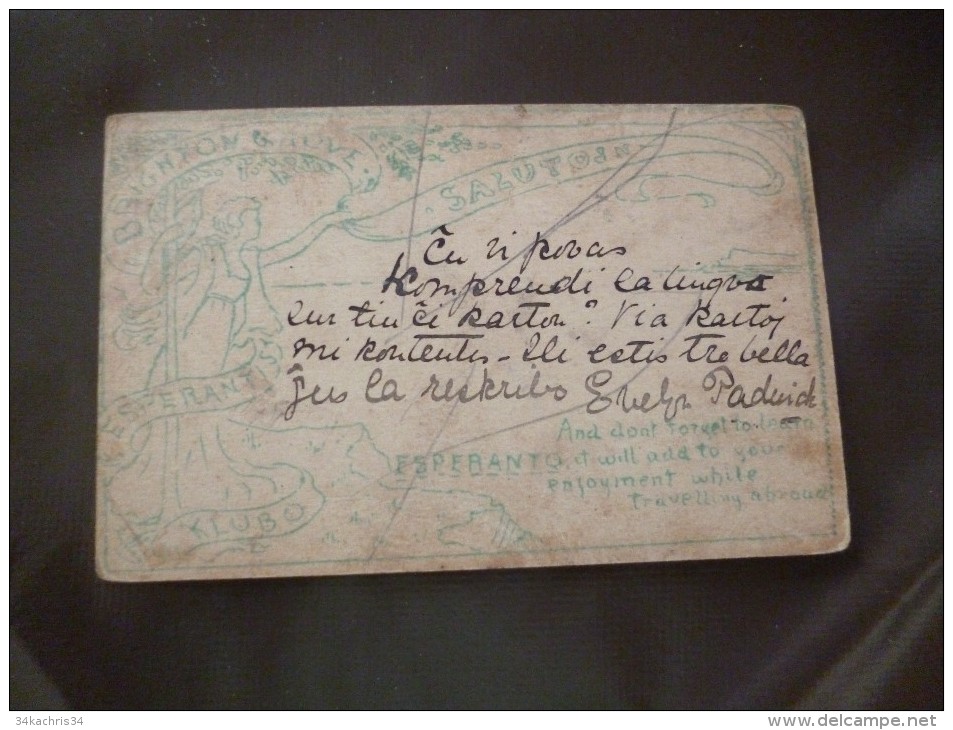 BRIGHTON & HOVE
SALUTOJN
Ĉu vi povas
Komprendi la lingvo
sur tiu ĉi karton? Via Kartoj
mi kontentes - Ili estis tre bella
Ĝus la reskribo Evelyn Padwick
ESPERANTISTA
KLUBO
And dont forget to learn
ESPERANTO, it will add to your
enjoyment while
travelling abroad
34kachris34
www.delcampe.net